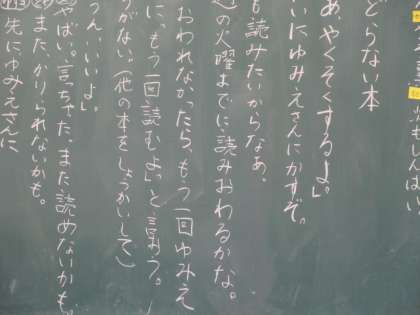 しんぱい
どらない本
あ、やくそくするよ。」
いにゆみえさんにかすぞ。
も読みたいからなあ。
の火曜までに読みおわるかな。
おわれなかったら、もう一回ゆみえ
に、もう一回読むよ」と言おう。
うがない。(他の本をしょうかいして)
うん、いいよ。」
やばい。言ちゃた。また読めないかも。
また、かりられないかも。
先にゆみえさんに